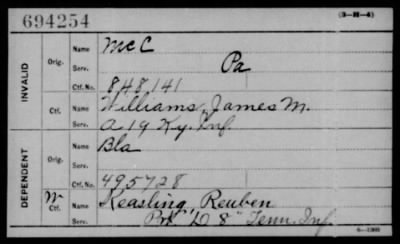 694254 (3-H-4)
INVALID Orig. Name McC
Serv. Pa
Ctf. No. 848,141
Ctf. Name Williams, James M.
Serv. A 19 Ky. Inf.
DEPENDENT Orig. Name Bla
Serv.
Ctf. No. 495728
W Ctf. Name Keasling, Reuben
Serv. "D" 8" Tenn. Inf